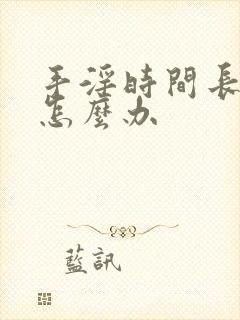 手淫時間長
怎麼办
藍訊